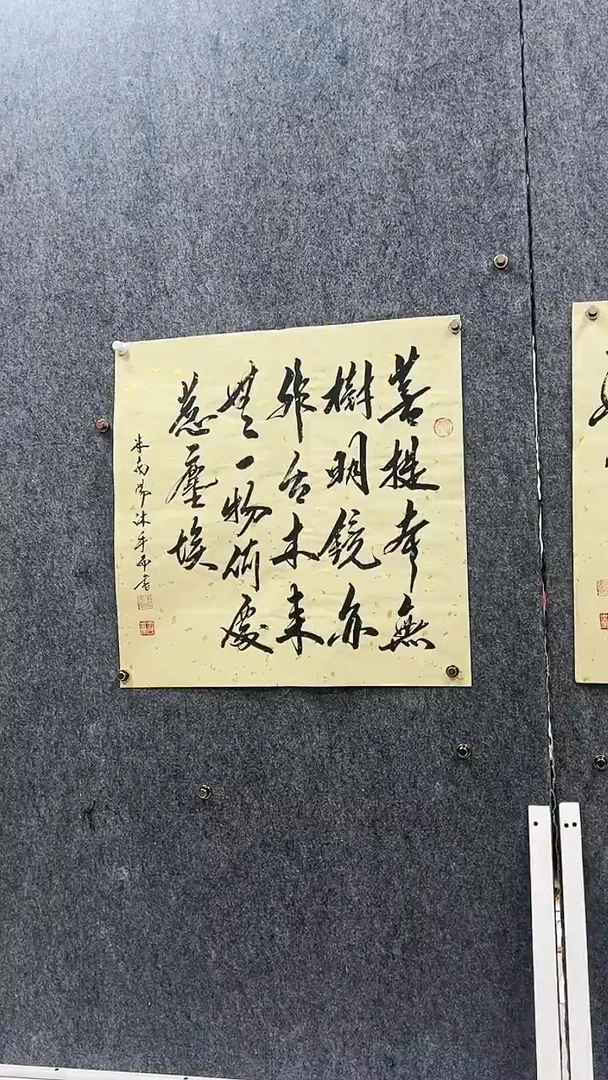 菩提本無
樹明鏡亦
非台本来
無一物何處
惹塵埃
沐手